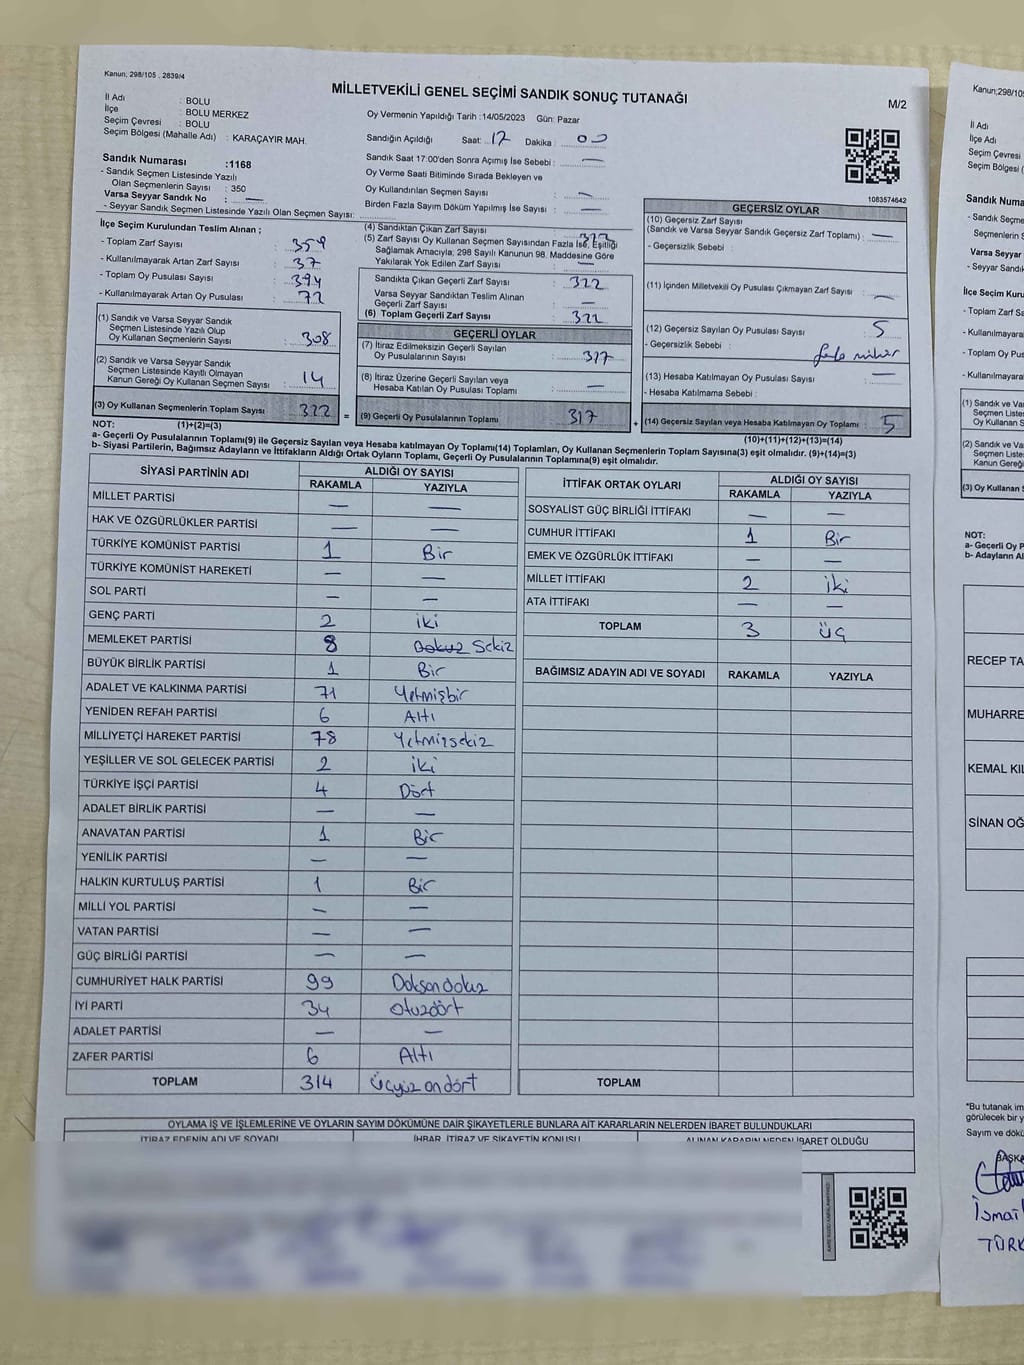 Kanun; 298/105 , 2839/4
MİLLETVEKİLİ GENEL SEÇİMİ SANDIK SONUÇ TUTANAĞI
M/2
İl Adı : BOLU
İlçe : BOLU MERKEZ
Seçim Çevresi : BOLU
Seçim Bölgesi (Mahalle Adı) : KARAÇAYIR MAH.
Oy Vermenin Yapıldığı Tarih :14/05/2023 Gün: Pazar
Sandığın Açıldığı Saat: 17 Dakika : 00
Sandık Saat 17:00'den Sonra Açımış İse Sebebi : —
Oy Verme Saati Bitiminde Sırada Bekleyen ve
Oy Kullandırılan Seçmen Sayısı : —
Birden Fazla Sayım Döküm Yapılmış İse Sayısı : —
Sandık Numarası :1168
- Sandık Seçmen Listesinde Yazılı
Olan Seçmenlerin Sayısı : 350
Varsa Seyyar Sandık No : —
- Seyyar Sandık Seçmen Listesinde Yazılı Olan Seçmen Sayısı:
1083574642
İlçe Seçim Kurulundan Teslim Alınan ;
- Toplam Zarf Sayısı : 359
- Kullanılmayarak Artan Zarf Sayısı : 37
- Toplam Oy Pusulası Sayısı : 394
- Kullanılmayarak Artan Oy Pusulası : 72
(1) Sandık ve Varsa Seyyar Sandık
Seçmen Listesinde Yazılı Olup
Oy Kullanan Seçmenlerin Sayısı : 308
(2) Sandık ve Varsa Seyyar Sandık
Seçmen Listesinde Kayıtlı Olmayan
Kanun Gereği Oy Kullanan Seçmen Sayısı : 14
(3) Oy Kullanan Seçmenlerin Toplam Sayısı : 322 =
(4) Sandıktan Çıkan Zarf Sayısı : 322
(5) Zarf Sayısı Oy Kullanan Seçmen Sayısından Fazla İse, Eşitliği
Sağlamak Amacıyla, 298 Sayılı Kanunun 98. Maddesine Göre
Yakılarak Yok Edilen Zarf Sayısı : —
Sandıkta Çıkan Geçerli Zarf Sayısı : 322
Varsa Seyyar Sandıktan Teslim Alınan
Geçerli Zarf Sayısı : —
(6) Toplam Geçerli Zarf Sayısı : 322
GEÇERLİ OYLAR
(7) İtiraz Edilmeksizin Geçerli Sayılan
Oy Pusulalarının Sayısı : 317
(8) İtiraz Üzerine Geçerli Sayılan veya
Hesaba Katılan Oy Pusulası Toplamı : —
(9) Geçerli Oy Pusulalarının Toplamı : 317 +
GEÇERSİZ OYLAR
(10) Geçersiz Zarf Sayısı
(Sandık ve Varsa Seyyar Sandık Geçersiz Zarf Toplamı) : —
- Geçersizlik Sebebi :
(11) İçinden Milletvekili Oy Pusulası Çıkmayan Zarf Sayısı : —
(12) Geçersiz Sayılan Oy Pusulası Sayısı : 5
- Geçersizlik Sebebi : fazla mühür
(13) Hesaba Katılmayan Oy Pusulası Sayısı : —
- Hesaba Katılmama Sebebi :
(14) Geçersiz Sayılan veya Hesaba Katılmayan Oy Toplamı : 5
NOT: (1)+(2)=(3)
(10)+(11)+(12)+(13)=(14)
a- Geçerli Oy Pusulalarının Toplamı(9) ile Geçersiz Sayılan veya Hesaba katılmayan Oy Toplamı(14) Toplamları, Oy Kullanan Seçmenlerin Toplam Sayısına(3) eşit olmalıdır. (9)+(14)=(3)
b- Siyasi Partilerin, Bağımsız Adayların ve İttifakların Aldığı Ortak Oyların Toplamı, Geçerli Oy Pusulalarının Toplamına(9) eşit olmalıdır.
SİYASİ PARTİNİN ADI ALDIĞI OY SAYISI
RAKAMLA YAZIYLA
MİLLET PARTİSİ — —
HAK VE ÖZGÜRLÜKLER PARTİSİ — —
TÜRKİYE KOMÜNİST PARTİSİ 1 Bir
TÜRKİYE KOMÜNİST HAREKETİ — —
SOL PARTİ — —
GENÇ PARTİ 2 iki
MEMLEKET PARTİSİ 8 Dokuz Sekiz
BÜYÜK BİRLİK PARTİSİ 1 Bir
ADALET VE KALKINMA PARTİSİ 71 Yetmişbir
YENİDEN REFAH PARTİSİ 6 Altı
MİLLİYETÇİ HAREKET PARTİSİ 78 Yetmişsekiz
YEŞİLLER VE SOL GELECEK PARTİSİ 2 iki
TÜRKİYE İŞÇİ PARTİSİ 4 Dört
ADALET BİRLİK PARTİSİ — —
ANAVATAN PARTİSİ 1 Bir
YENİLİK PARTİSİ — —
HALKIN KURTULUŞ PARTİSİ 1 Bir
MİLLİ YOL PARTİSİ — —
VATAN PARTİSİ — —
GÜÇ BİRLİĞİ PARTİSİ — —
CUMHURİYET HALK PARTİSİ 99 Doksandokuz
İYİ PARTİ 34 Otuzdört
ADALET PARTİSİ — —
ZAFER PARTİSİ 6 Altı
TOPLAM 314 Üçyüzondört
İTTİFAK ORTAK OYLARI ALDIĞI OY SAYISI
RAKAMLA YAZIYLA
SOSYALİST GÜÇ BİRLİĞİ İTTİFAKI — —
CUMHUR İTTİFAKI 1 Bir
EMEK VE ÖZGÜRLÜK İTTİFAKI — —
MİLLET İTTİFAKI 2 iki
ATA İTTİFAKI — —
TOPLAM 3 üç
BAĞIMSIZ ADAYIN ADI VE SOYADI RAKAMLA YAZIYLA
TOPLAM
OYLAMA İŞ VE İŞLEMLERİNE VE OYLARIN SAYIM DÖKÜMÜNE DAİR ŞİKAYETLERLE BUNLARA AİT KARARLARIN NELERDEN İBARET BULUNDUKLARI
İTİRAZ EDENİN ADI VE SOYADI İHBAR, İTİRAZ VE ŞİKAYETİN KONUSU ALINAN KARARIN NEDEN İBARET OLDUĞU
Kanun;298/105
İl Adı
İlçe Adı
Seçim Çevresi
Seçim Bölgesi (
Sandık Numa
- Sandık Seçme
Seçmenlerin
Varsa Seyyar
- Seyyar Sandı
İlçe Seçim Kuru
- Toplam Zarf Sa
- Kullanılmayara
- Toplam Oy Pus
- Kullanılmayara
(1) Sandık ve Var
Seçmen Liste
Oy Kullanan S
(2) Sandık ve Var
Seçmen Liste
Kanun Gereği
(3) Oy Kullanan S
NOT:
a- Geçerli Oy P
b- Adayların Al
RECEP TA
MUHARRE
KEMAL KIL
SİNAN OĞ
*Bu tutanak im
görülecek bir y
Sayım ve dökü
BAŞKA
İsmail
TÜRK